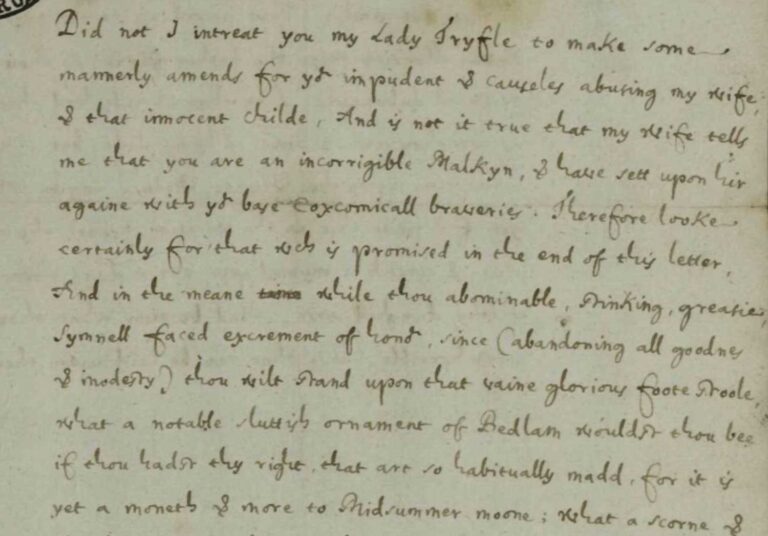 Did not I intreat you my Lady Tryfle to make some
mannerly amends for yor impudent & causeles abusing my wife,
& that innocent childe, And is not it true that my wife tells
me that you are an incorrigible Malkyn, & have sett upon hir
againe with yor base Coxcomicall braveries. Therefore looke
certainly for that wch is promised in the end of this letter,
And in the meane while thou abominable, stinking, greasie,
Symnell faced excrement of honor, since (abandoning all goodnes
& modesty) thou wilt stand upon that vaine glorious foote stoole,
what a notable sluttish ornament of Bedlam wouldst thou bee
if thou hadst thy right, that art so habitually madd, for it is
yet a moneth & more to Midsummer moone; what a scorne &